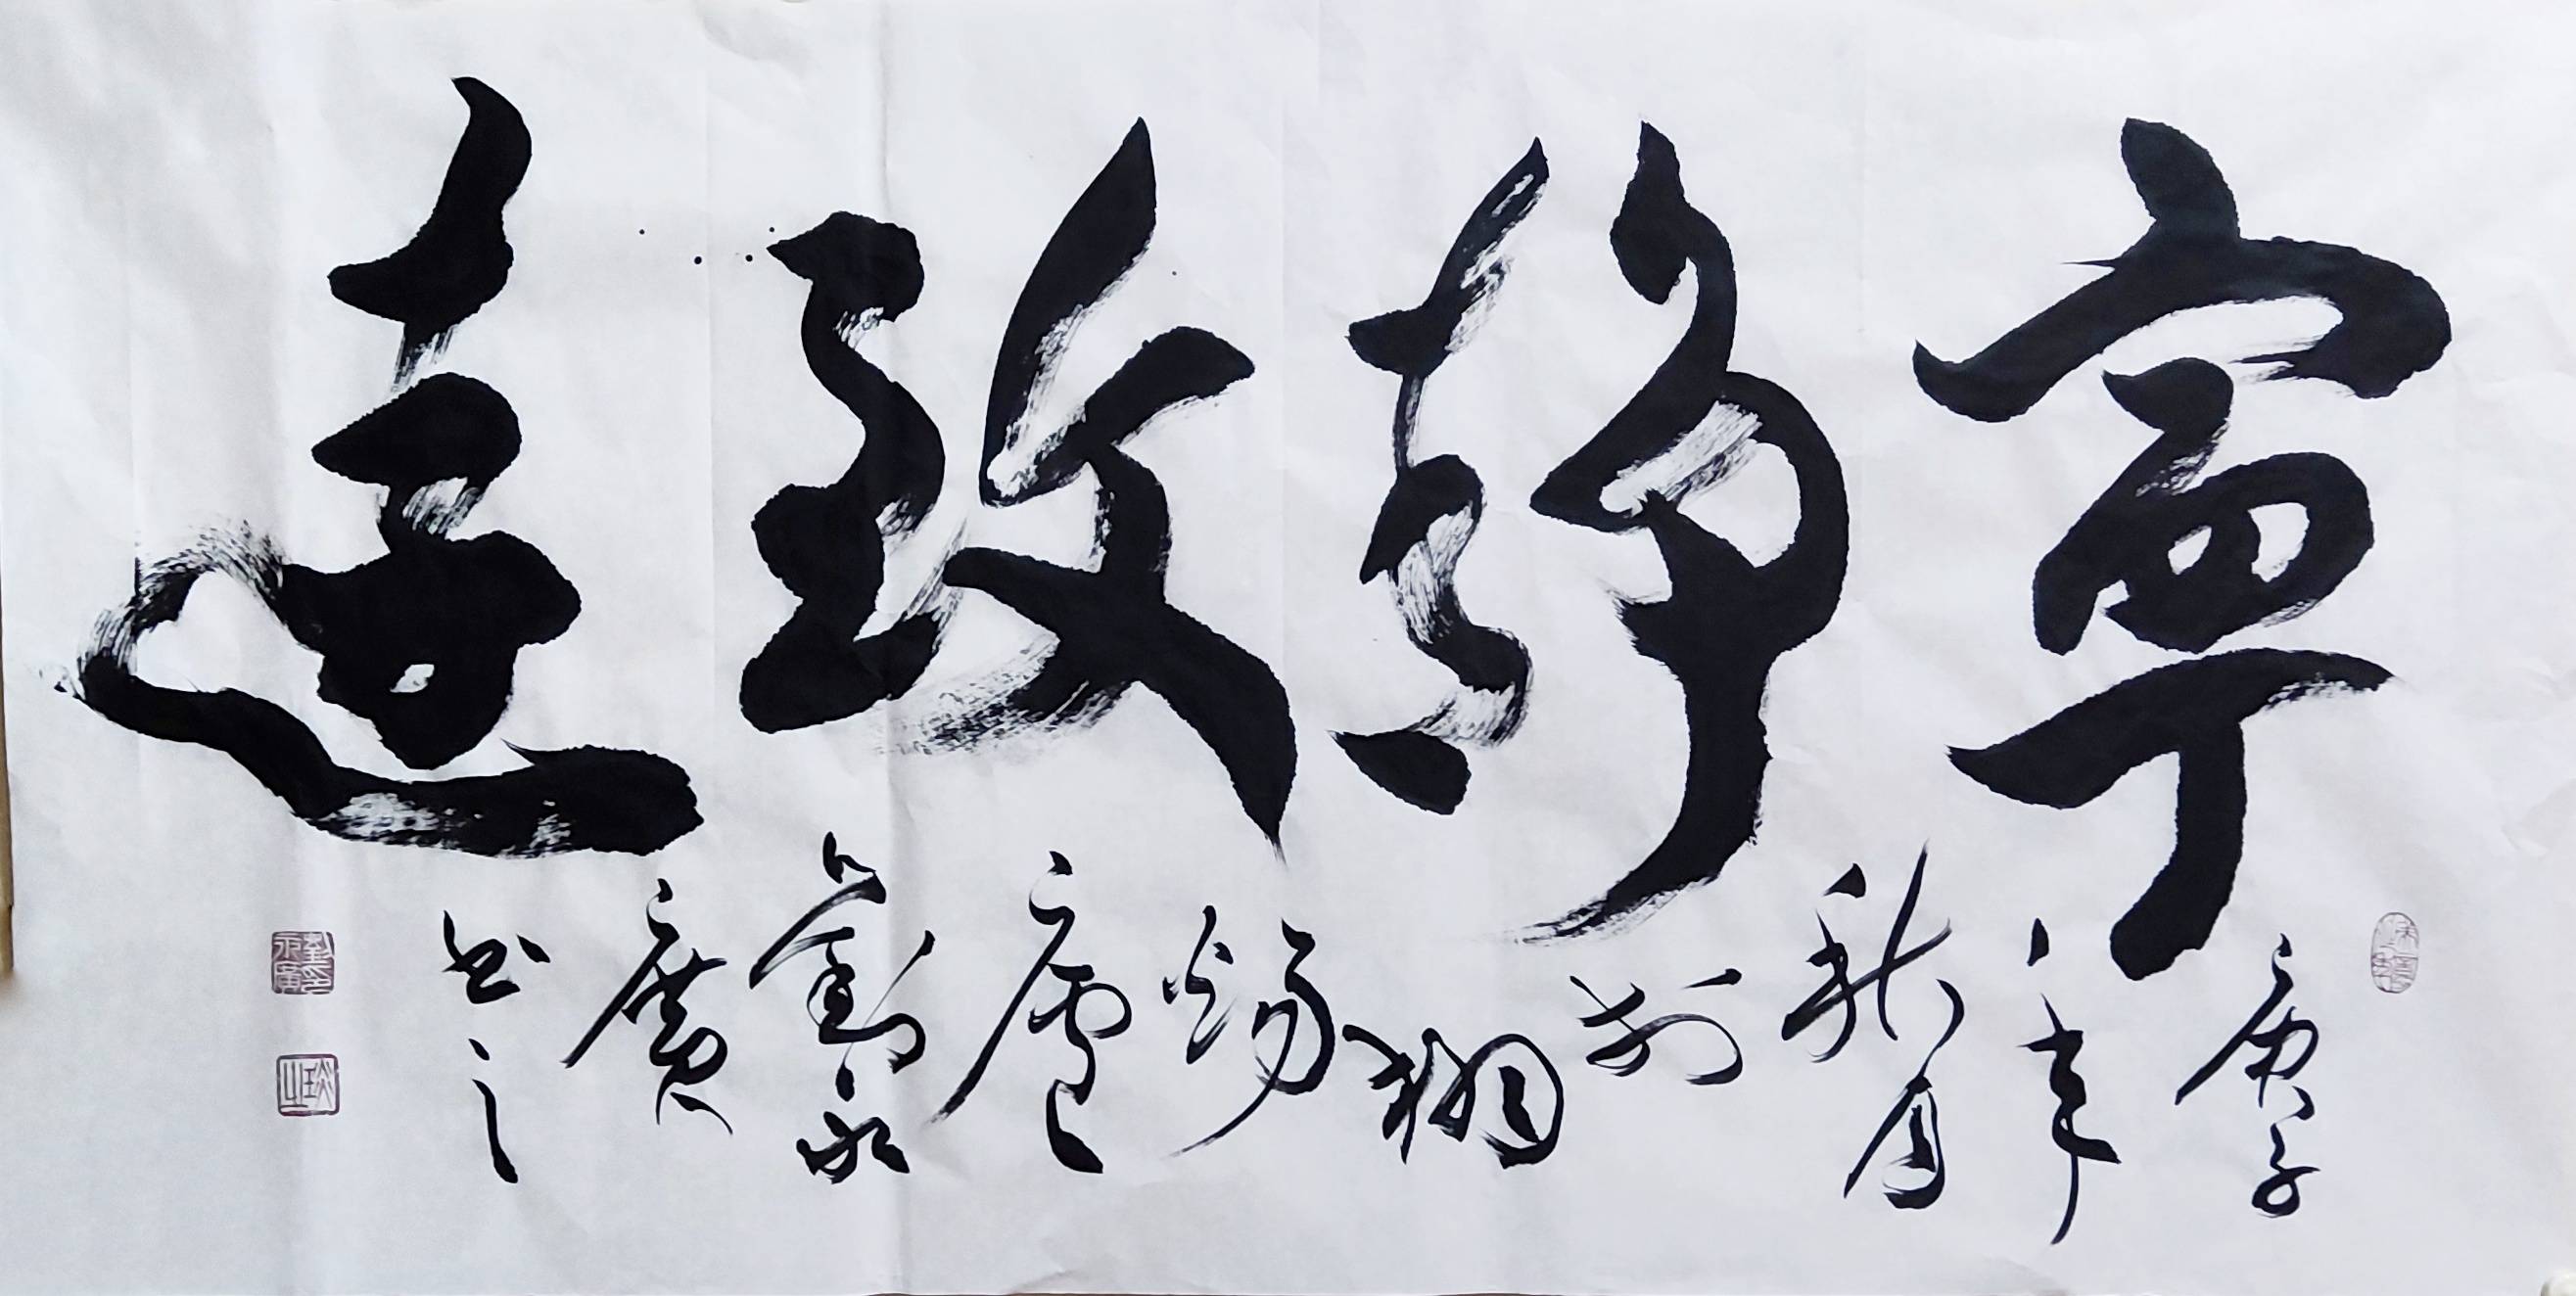 寧静致遠
庚子
年
秋月
於
廬
劉永
廣
書之